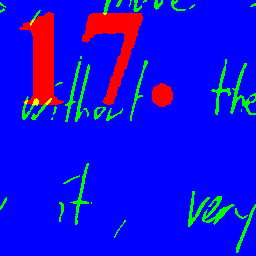 move.
17.
without the
it, very